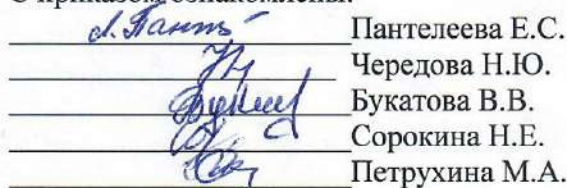 С приказом ознакомлены:
Пантелеева Е.С.
Чередова Н.Ю.
Букатова В.В.
Сорокина Н.Е.
Петрухина М.А.